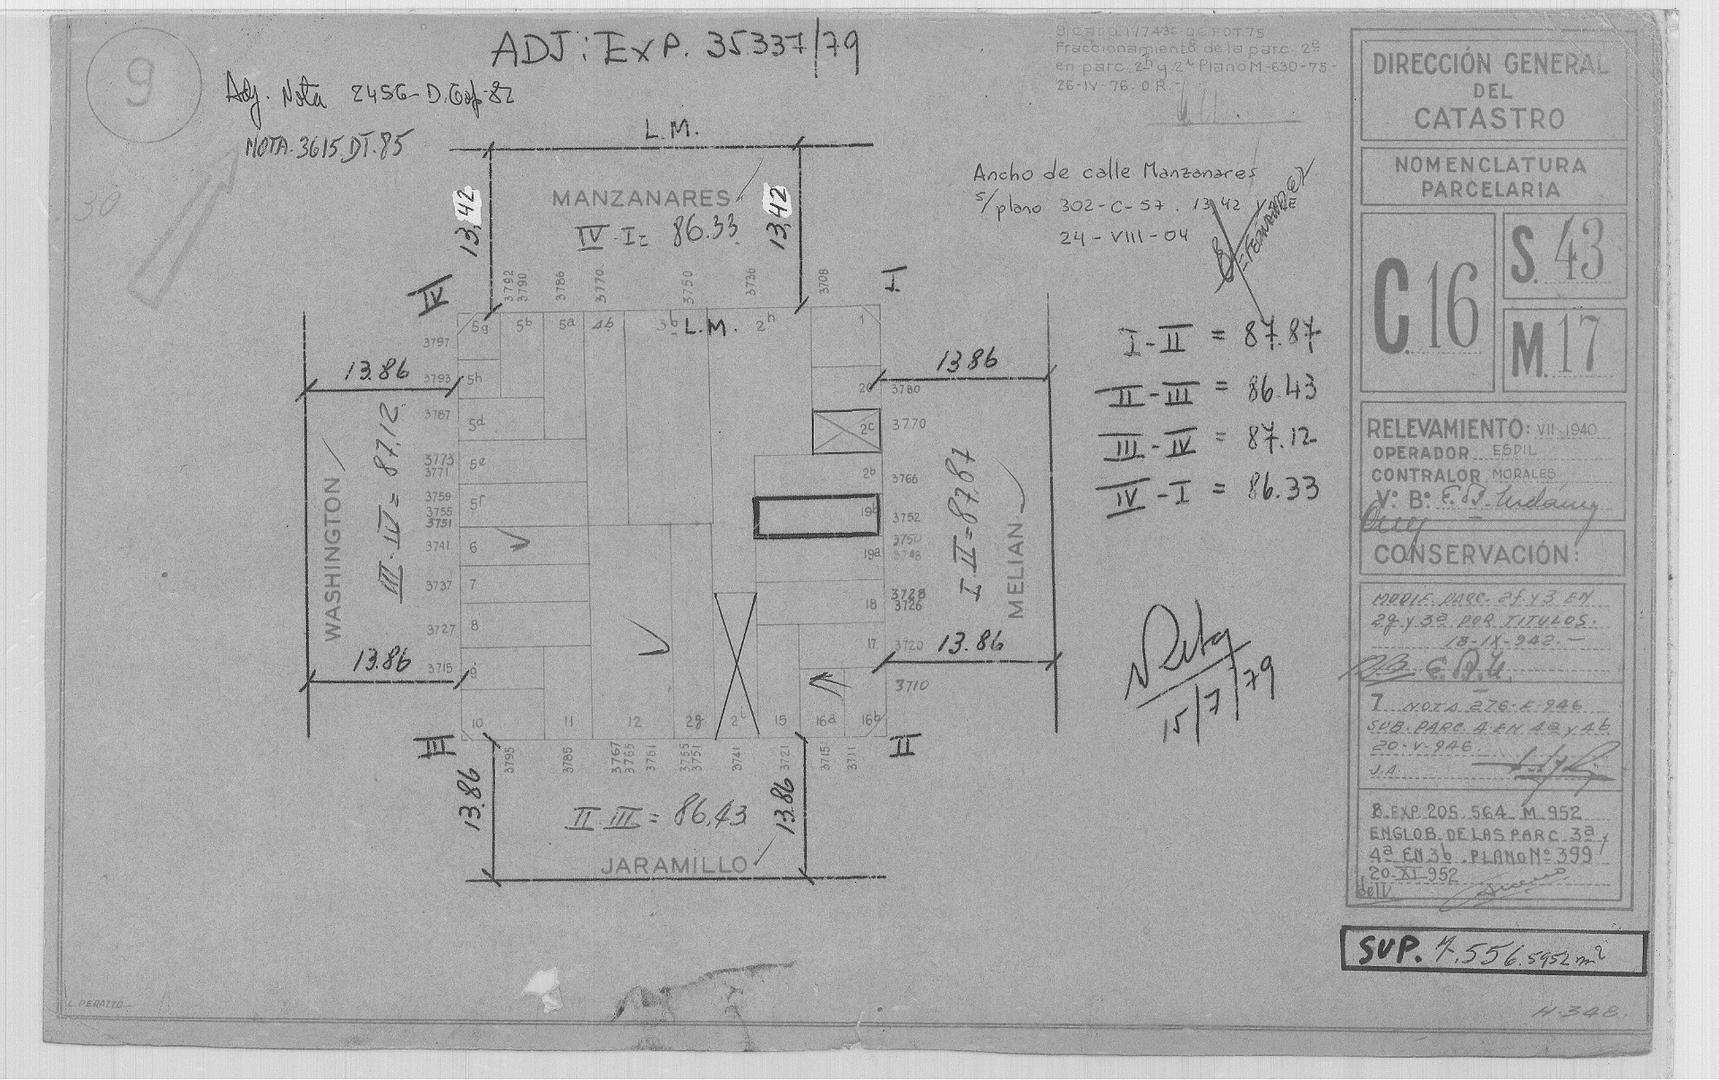 9
ADJ: EXP. 35337/79
Adj. Nota 2456-D.Gof-82
NOTA-3615.DT.85
30
Fraccionamiento de la parc. 2e
en parc. 2h y 2i Plano M-630-75-
26-IV-76. O.R.-
L.M.
MANZANARES
IV-I= 86.33
13,42
13,42
Ancho de calle Manzanares
s/plano 302-C-57. 13,42
24-VIII-04
FERNANDEZ
IV
I
3792
3790
3786
3770
3750
3736
3708
5g
5b
5a
4b
3b
L.M.
2h
1
3797
3793
5h
3787
5d
3773
3771
5e
3759
3755
3751
5f
3741
6
3737
7
3727
8
3715
9
13.86
13.86
WASHINGTON
III-IV = 87,12
3780
2c
3770
2b
3766
19b
3752
3750
3748
19a
3728
3726
18
17
3720
3710
13.86
13.86
I-II=87,87
MELIAN
10
11
12
2g
2i
15
16a
16b
III
II
3795
3785
3767
3765
3761
3755
3751
3741
3721
3715
3711
13.86
13.86
II-III = 86,43
JARAMILLO
I-II = 87.87
II-III = 86.43
III-IV = 87.12
IV-I = 86.33
15/7/79
DIRECCIÓN GENERAL
DEL
CATASTRO
NOMENCLATURA
PARCELARIA
C. 16
S. 43
M. 17
RELEVAMIENTO: VII-1940
OPERADOR ESPIL
CONTRALOR MORALES
V: B:
CONSERVACIÓN:
MODIF. PARC. 2f Y 3 EN
2g y 3a POR TITULOS.
18-IX-942.-
7 NOTA 276-E-946
SUB. PARC 4 EN 4a y 4b
20-V-946.
J.A.
8.EXP.205.564.M.952
ENGLOB. DE LAS PARC. 3a y
4a EN 3b. PLANO Nº 399
20-XI-952
SUP. 7.556.5952 m²
L. PERAZZO
H-348.